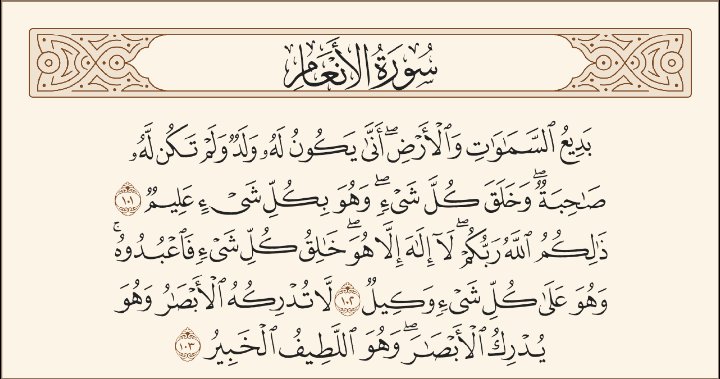 سُورَةُ الأَنْعَامِ
بَدِيعُ ٱلسَّمَـٰوَٰتِ وَٱلْأَرْضِ ۖ أَنَّىٰ يَكُونُ لَهُۥ وَلَدٌ وَلَمْ تَكُن لَّهُۥ
صَـٰحِبَةٌ ۖ وَخَلَقَ كُلَّ شَىْءٍ ۖ وَهُوَ بِكُلِّ شَىْءٍ عَلِيمٌ ١٠١
ذَٰلِكُمُ ٱللَّهُ رَبُّكُمْ ۖ لَآ إِلَـٰهَ إِلَّا هُوَ ۖ خَـٰلِقُ كُلِّ شَىْءٍ فَٱعْبُدُوهُ ۚ
وَهُوَ عَلَىٰ كُلِّ شَىْءٍ وَكِيلٌ ١٠٢ لَّا تُدْرِكُهُ ٱلْأَبْصَـٰرُ وَهُوَ
يُدْرِكُ ٱلْأَبْصَـٰرَ ۖ وَهُوَ ٱللَّطِيفُ ٱلْخَبِيرُ ١٠٣